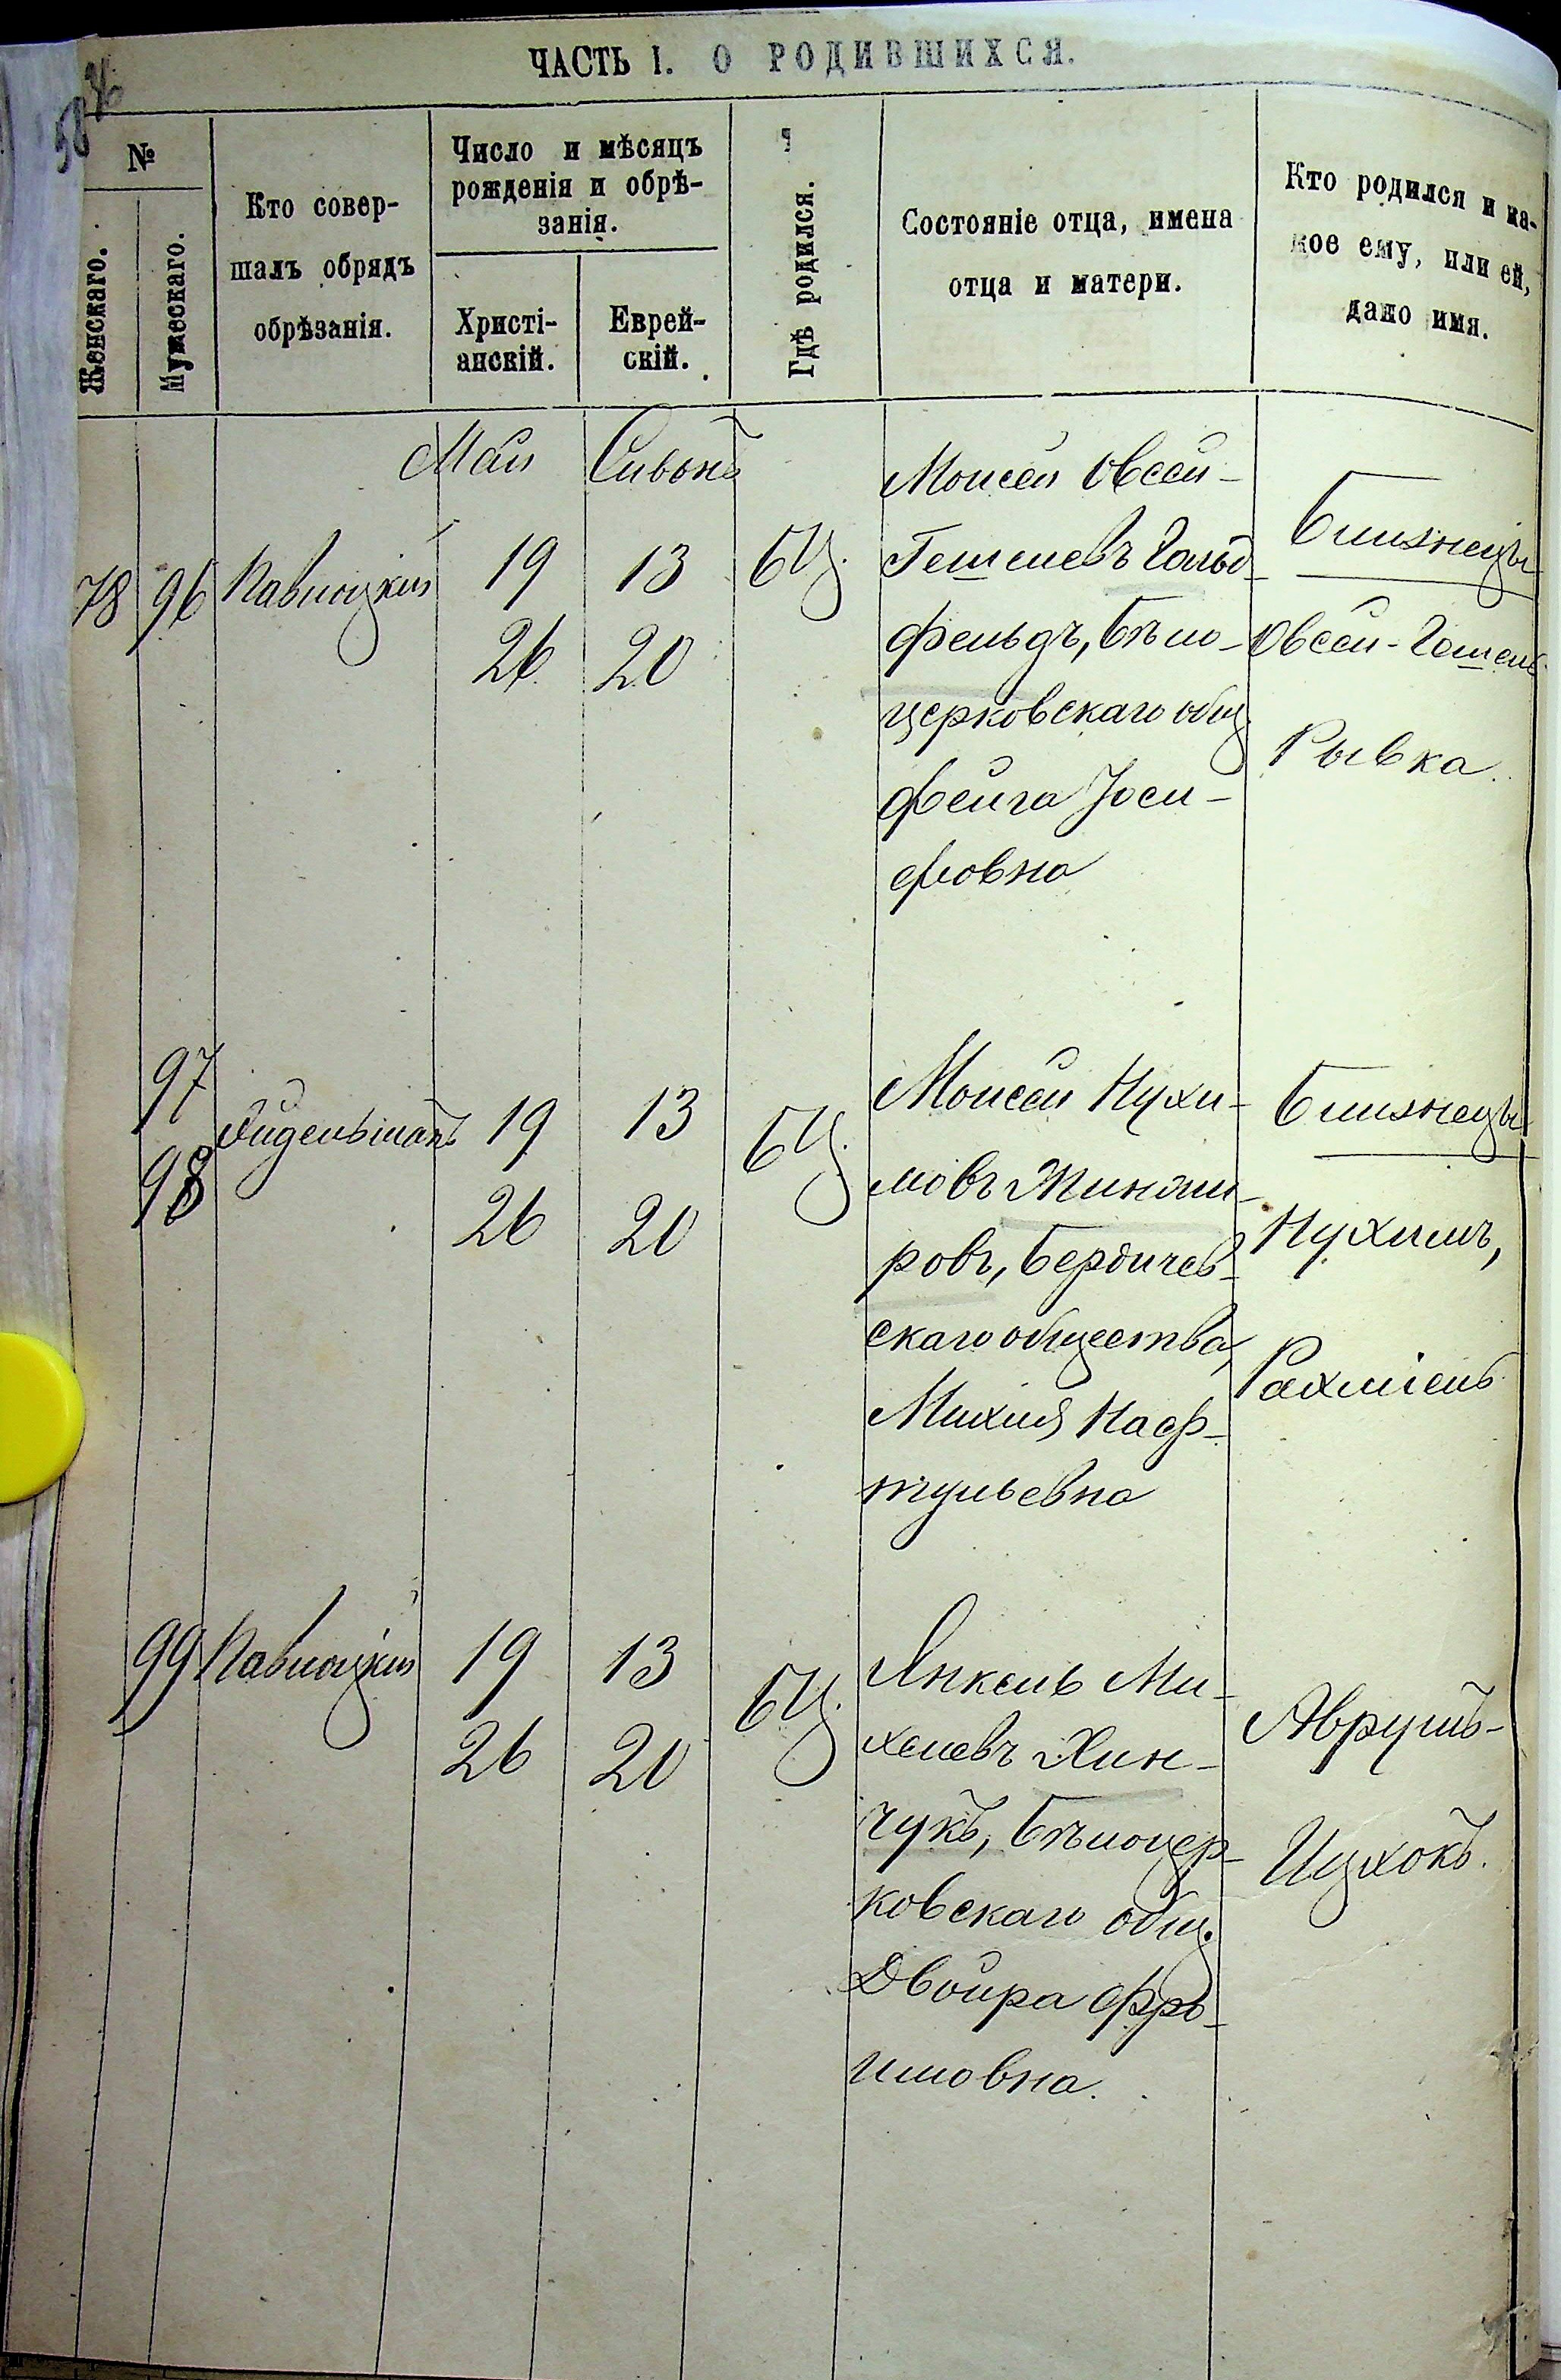 ЧАСТЬ I. О РОДИВШИХСЯ.
№
Женскаго.
Мужескаго.
Кто совер-
шалъ обрядъ
обрѣзанія.
Число и мѣсяцъ
рожденія и обрѣ-
занія.
Христі-
анскій.
Еврей-
скій.
Гдѣ родился.
Состояніе отца, имена
отца и матери.
Кто родился и ка-
кое ему, или ей,
дано имя.
Май Сивонъ
78 96 Павлоцкій 19 13 БЦ.
26 20
Моисей Овсей-
Гешелевъ Гольд-
фельдъ, Бѣло-
церковскаго общ.
Фейга Іоси-
фовна
Близнецы
Овсей-Гешель
Рывка.
97
98
Эйдельманъ 19 13 БЦ.
26 20
Моисей Нухи-
мовъ Жиномировъ
ровъ, Бердичев-
скаго общества,
Михля Наф-
тульевна
Близнецы
Нухимъ,
Рахміель
99 Павлоцкій 19 13 БЦ.
26 20
Янкель Ми-
хелевъ Хин-
чукъ, Бѣлоцер-
ковскаго общ.
Двойра Фро-
имовна.
Аврумъ-
Ицхокъ.